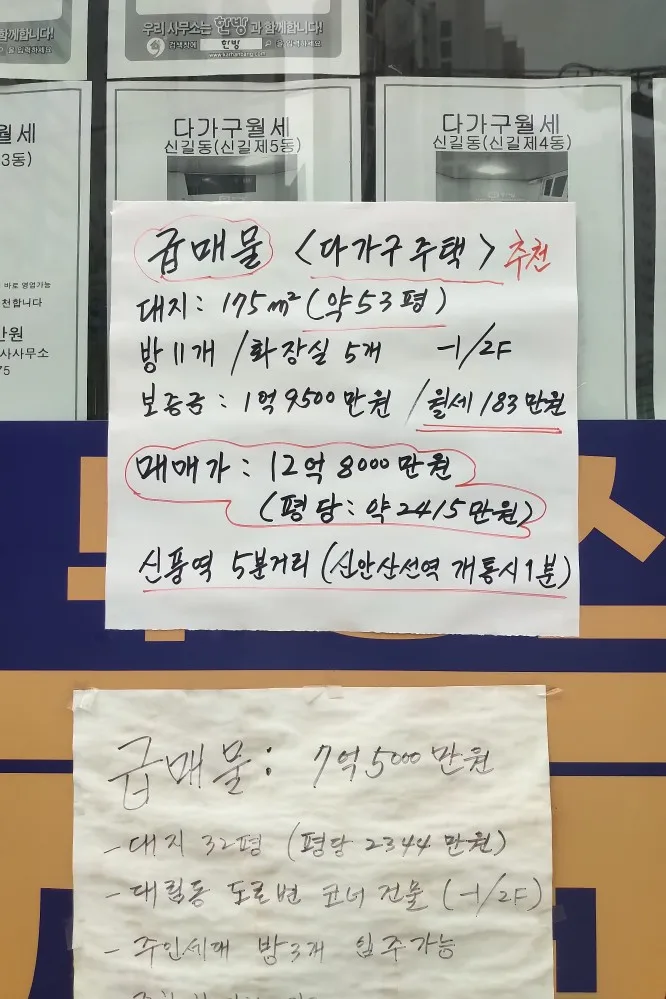 함께합니다!
을 입력하세요
우리 사무소는 한방과 함께합니다!
검색창에 한방 을 입력하세요.
월세
3동)
바로 영업가능
천합니다
만원
사사무소
75
다가구월세
신길동(신길제5동)
다가구월세
신길동(신길제4동)
급매물 <다가구주택> 추천
대지: 175m² (약53평)
방11개 / 화장실 5개 -1/2F
보증금: 1억9500만원 / 월세 183만원
매매가: 12억 8000만원
(평당: 약2415만원)
신풍역 5분거리 (신안산선역 개통시 1분)
급매물: 7억5000만원
- 대지 32평 (평당 2344만원)
- 대림동 도로변 코너 건물 (-1/2F)
- 주인세대 방3개 입주가능